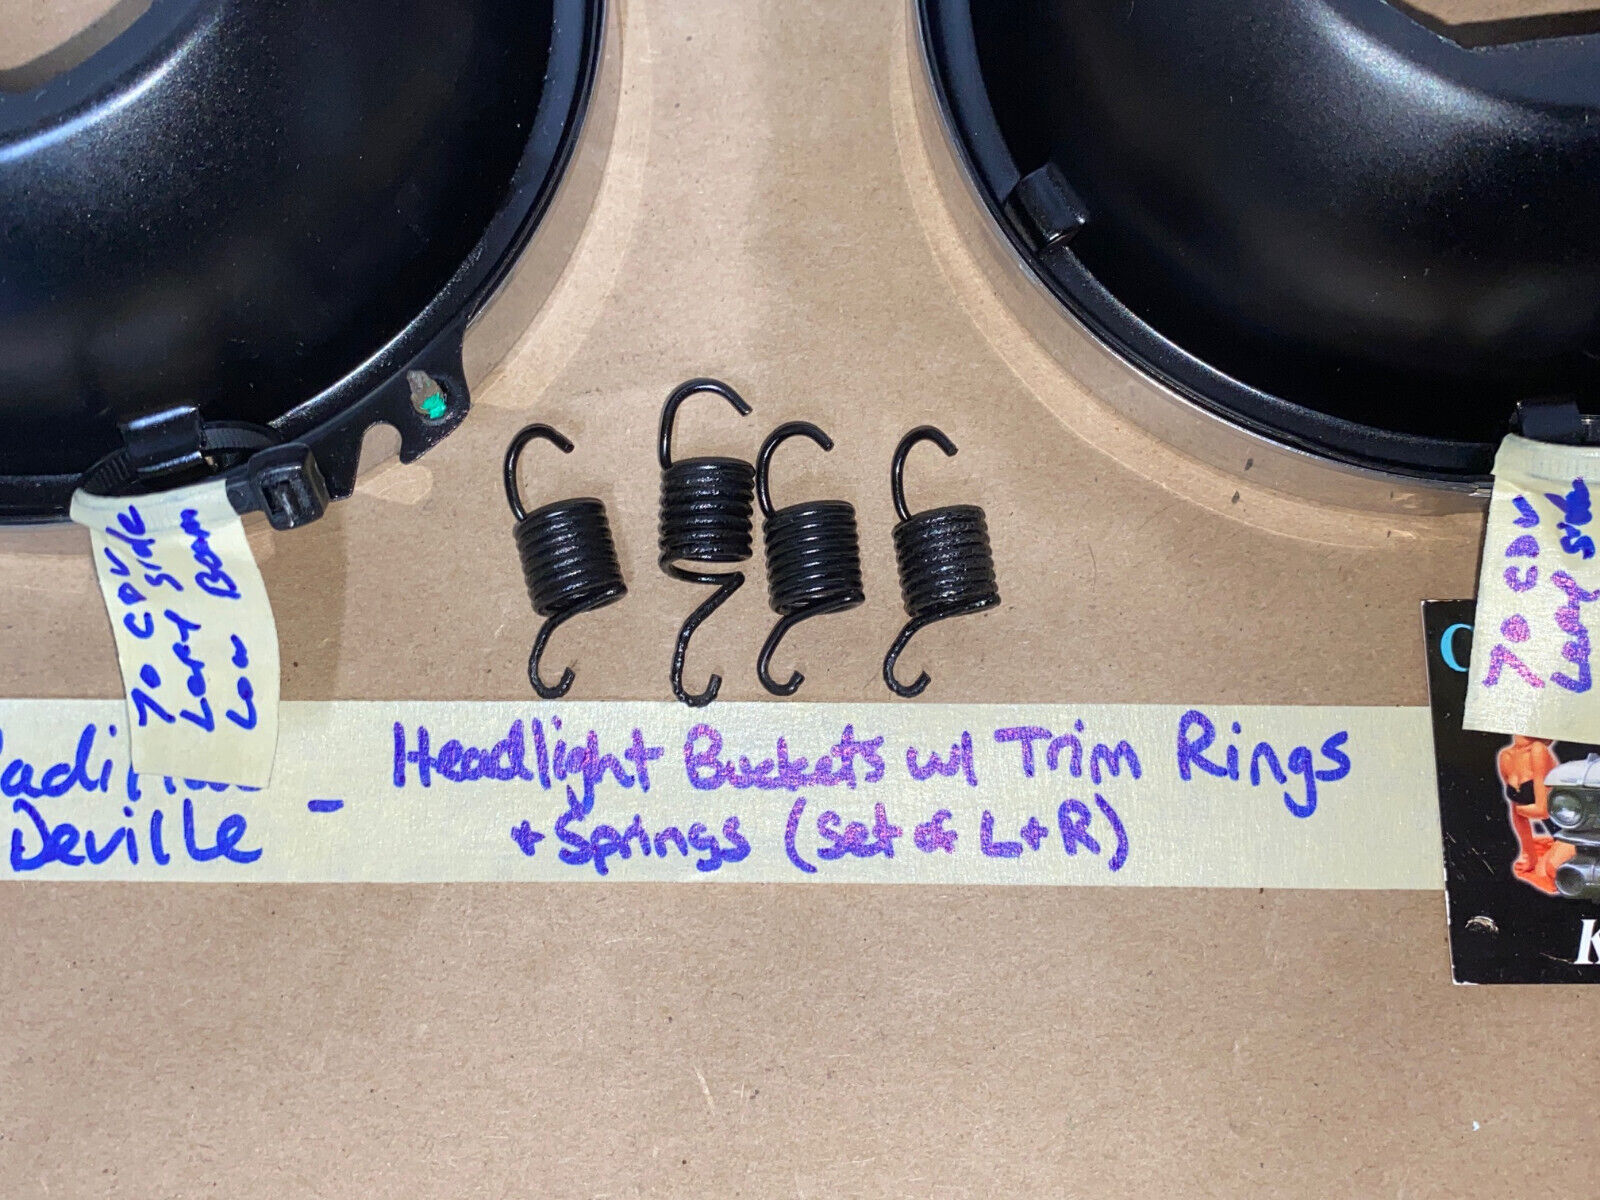 70 CDV
Left Side
Low Beam
70 CDV
Side
Deville - Headlight Buckets w/ Trim Rings
+ Springs (Set of L+R)